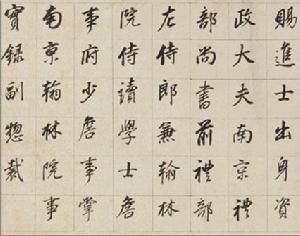 賜進士出身資
政大夫南京禮
部尚書前禮部
左侍郎兼翰林
院侍讀學士詹
事府少詹事掌
南京翰林院事
實録副惣裁